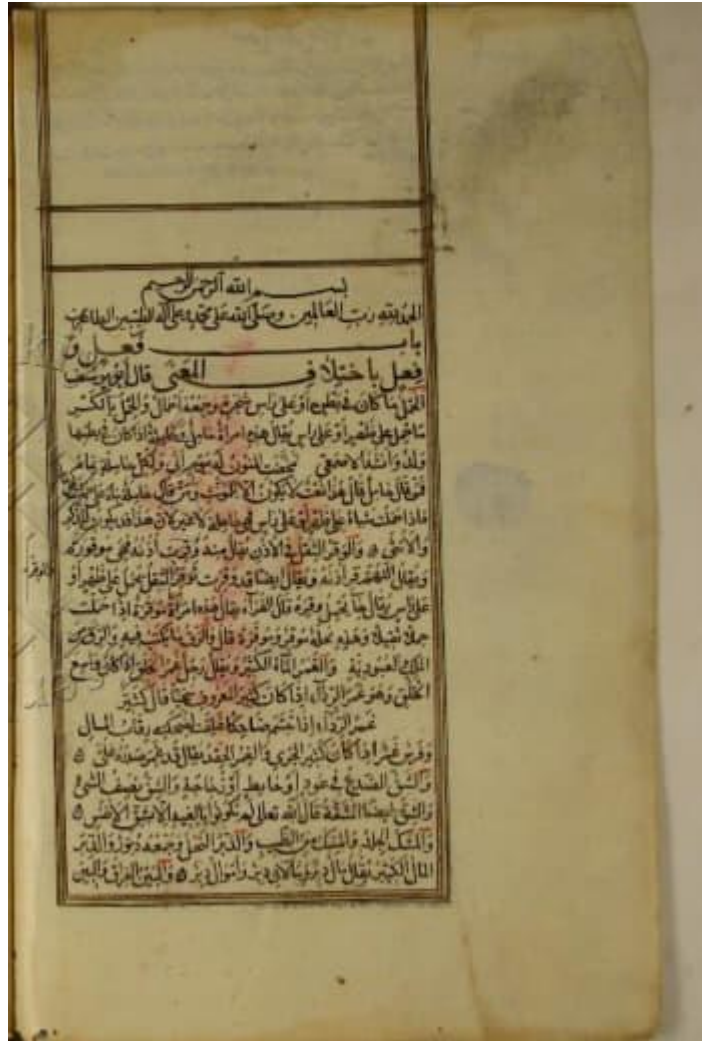 بسم الله الرحمن الرحيم
الحمد لله رب العالمين وصلى الله على محمد وعلى آله الطيبين الطاهرين
باب فَعْل و
فِعْل باختلاف المعنى قال أبو يوسف
الحَمل ما كان في بطن أو على رأس شجرة وجمعه أحمال والحِمل بالكسر
ما حمل على ظهر أو على رأس يقال هذه امرأة حامل وحاملة إذا كان في بطنها
ولد وأنشد الأصمعي تمخضت المنون له بيوم أنى ولكل حاملة تمام
فمن قال حامل قال هذا نعت لا يكون إلا للمؤنث ومن قال حاملة بنى على حملت
فإذا حملت شيئا على ظهر أو على رأس فهي حاملة لا غير لأن هذا قد يكون للذكر
والأنثى والوقر الثقل في الأذن يقال منه وقرت أذنه فهي موقورة
ويقال اللهم قر أذنه ويقال أيضا قد وقرت توقر والوقر الثقل يحمل على ظهر أو
على رأس يقال جاء يحمل وقره قال الفراء يقال هذه امرأة موقرة إذا حملت
حملا ثقيلا وهذه نخلة موقر وموقرة قال والرق ما يكتب فيه والرق من
الملك العبودية والغمر الماء الكثير ويقال رجل غمر الخلق إذا كان واسع
الخلق وهو غمر الرداء إذا كان كثير المعروف سخيا قال كثير
غمر الرداء إذا تبسم ضاحكا غلقت لضحكته رقاب المال
وفرس غمر إذا كان كثير الجري والغمر الحقد يقال قد غمر صدره علي
والشق الصدع في عود أو حائط أو زجاجة والشق نصف الشيء
والشق أيضا المشقة قال الله تعالى لم تكونوا بالغيه إلا بشق الأنفس
والمسك الجلد والمسك من الطيب والدبر النحل وجمعه دبور والدبر
المال الكثير يقال مال دبر ومالان دبر وأموال دبر والبين الفراق والبين